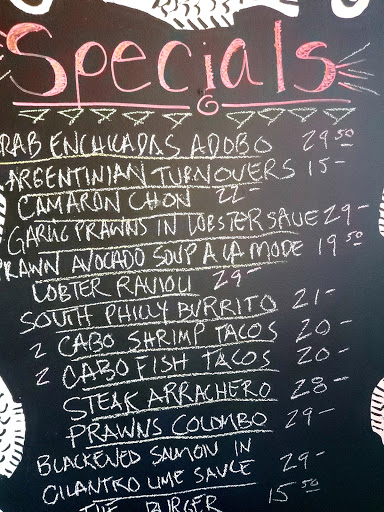 Specials
RAB ENCHILADAS ADOBO 29.50
ARGENTINIAN TURNOVERS 15-
CAMARON CHON 22-
GARLIC PRAWNS IN LOBSTER SAUCE 29-
PRAWN AVOCADO SOUP A LA MODE 19.50
LOBTER RAVIOLI 29-
SOUTH PHILLY BURRITO 21-
2 CABO SHRIMP TACOS 20-
2 CABO FISH TACOS 20-
STEAK ARRACHERO 28-
PRAWNS COLOMBO 29-
BLACKENED SALMON IN
CILANTRO LIME SAUCE 29-
THE BURGER 15.50